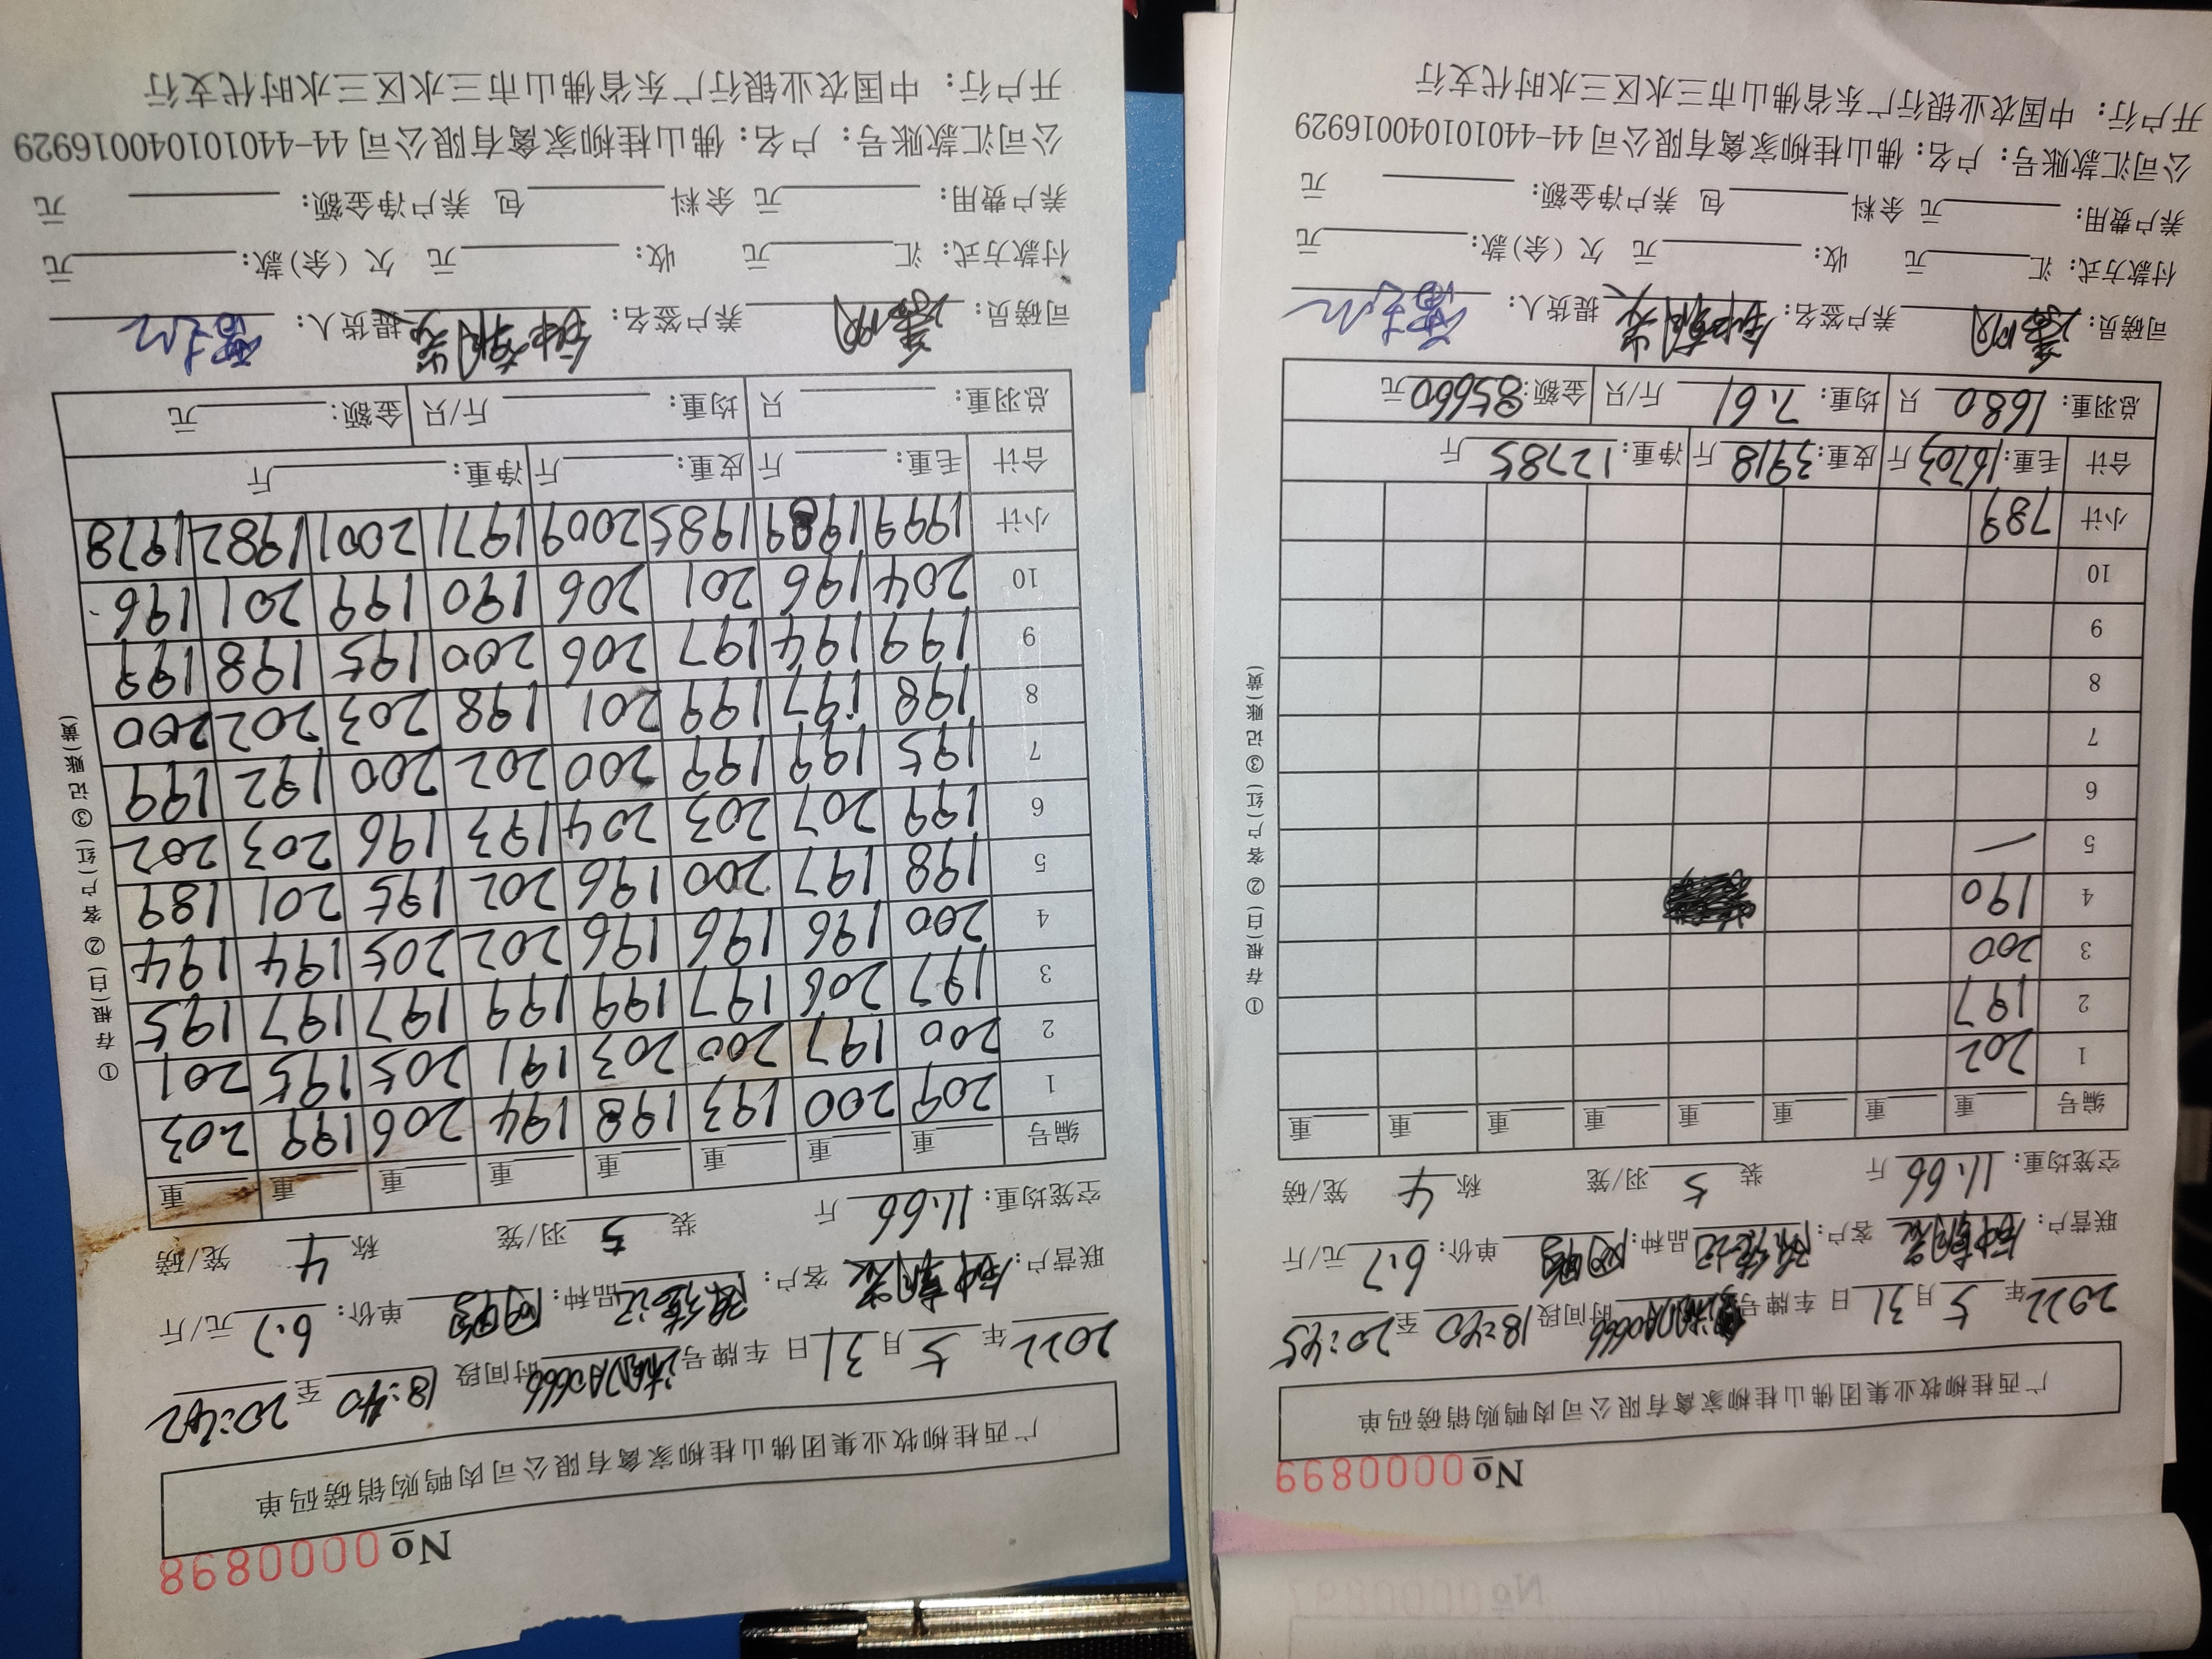 №0000899
广西桂柳牧业集团佛山桂柳家禽有限公司肉鸭购销磅码单
2022年 5月31日 车牌号 时间段18:40至20:45
联营户: 客户: 品种: 单价:6.7元/斤
空笼均重:11.66斤 装5羽/笼 称4笼/磅
编号 重 重 重 重 重 重 重 重
1 202
2 197
3 200
4 190
5 —
6
7
8
9
10
小计 789
合计 毛重:16703斤 皮重:3918斤 净重:12785斤
总羽重:1680只 均重:7.61斤/只 金额:85660元
司磅员: 养户签名: 提货人:
付款方式: 汇 元 收: 元 欠(余)款: 元
养户费用: 元 余料 包 养户净金额: 元
公司汇款账号: 户名: 佛山桂柳家禽有限公司 44-440101040016929
开户行: 中国农业银行广东省佛山市三水区三水时代支行
①存根(白)②客户(红)③记账(黄)
№0000898
广西桂柳牧业集团佛山桂柳家禽有限公司肉鸭购销磅码单
2022年 5月31日 车牌号 时间段18:40至20:42
联营户: 客户: 品种: 单价:6.7元/斤
空笼均重:11.66斤 装5羽/笼 称4笼/磅
编号 重 重 重 重 重 重 重 重
1 209 200 193 198 194 206 199 203
2 200 197 200 203 191 205 195 201
3 197 206 197 199 199 197 197 195
4 200 196 196 196 202 205 194 194
5 198 197 200 196 202 195 201 189
6 199 207 203 204 193 196 203 202
7 195 199 199 200 202 200 192 199
8 198 197 199 201 198 203 202 200
9 199 194 197 206 200 195 198 199
10 204 196 201 206 190 199 201 196
小计 1999 1989 1985 2009 1971 2001 1982 1978
合计 毛重: 斤 皮重: 斤 净重: 斤
总羽重: 只 均重: 斤/只 金额: 元
司磅员: 养户签名: 提货人:
付款方式: 汇 元 收: 元 欠(余)款: 元
养户费用: 元 余料 包 养户净金额: 元
公司汇款账号: 户名: 佛山桂柳家禽有限公司 44-440101040016929
开户行: 中国农业银行广东省佛山市三水区三水时代支行
①存根(白)②客户(红)③记账(黄)